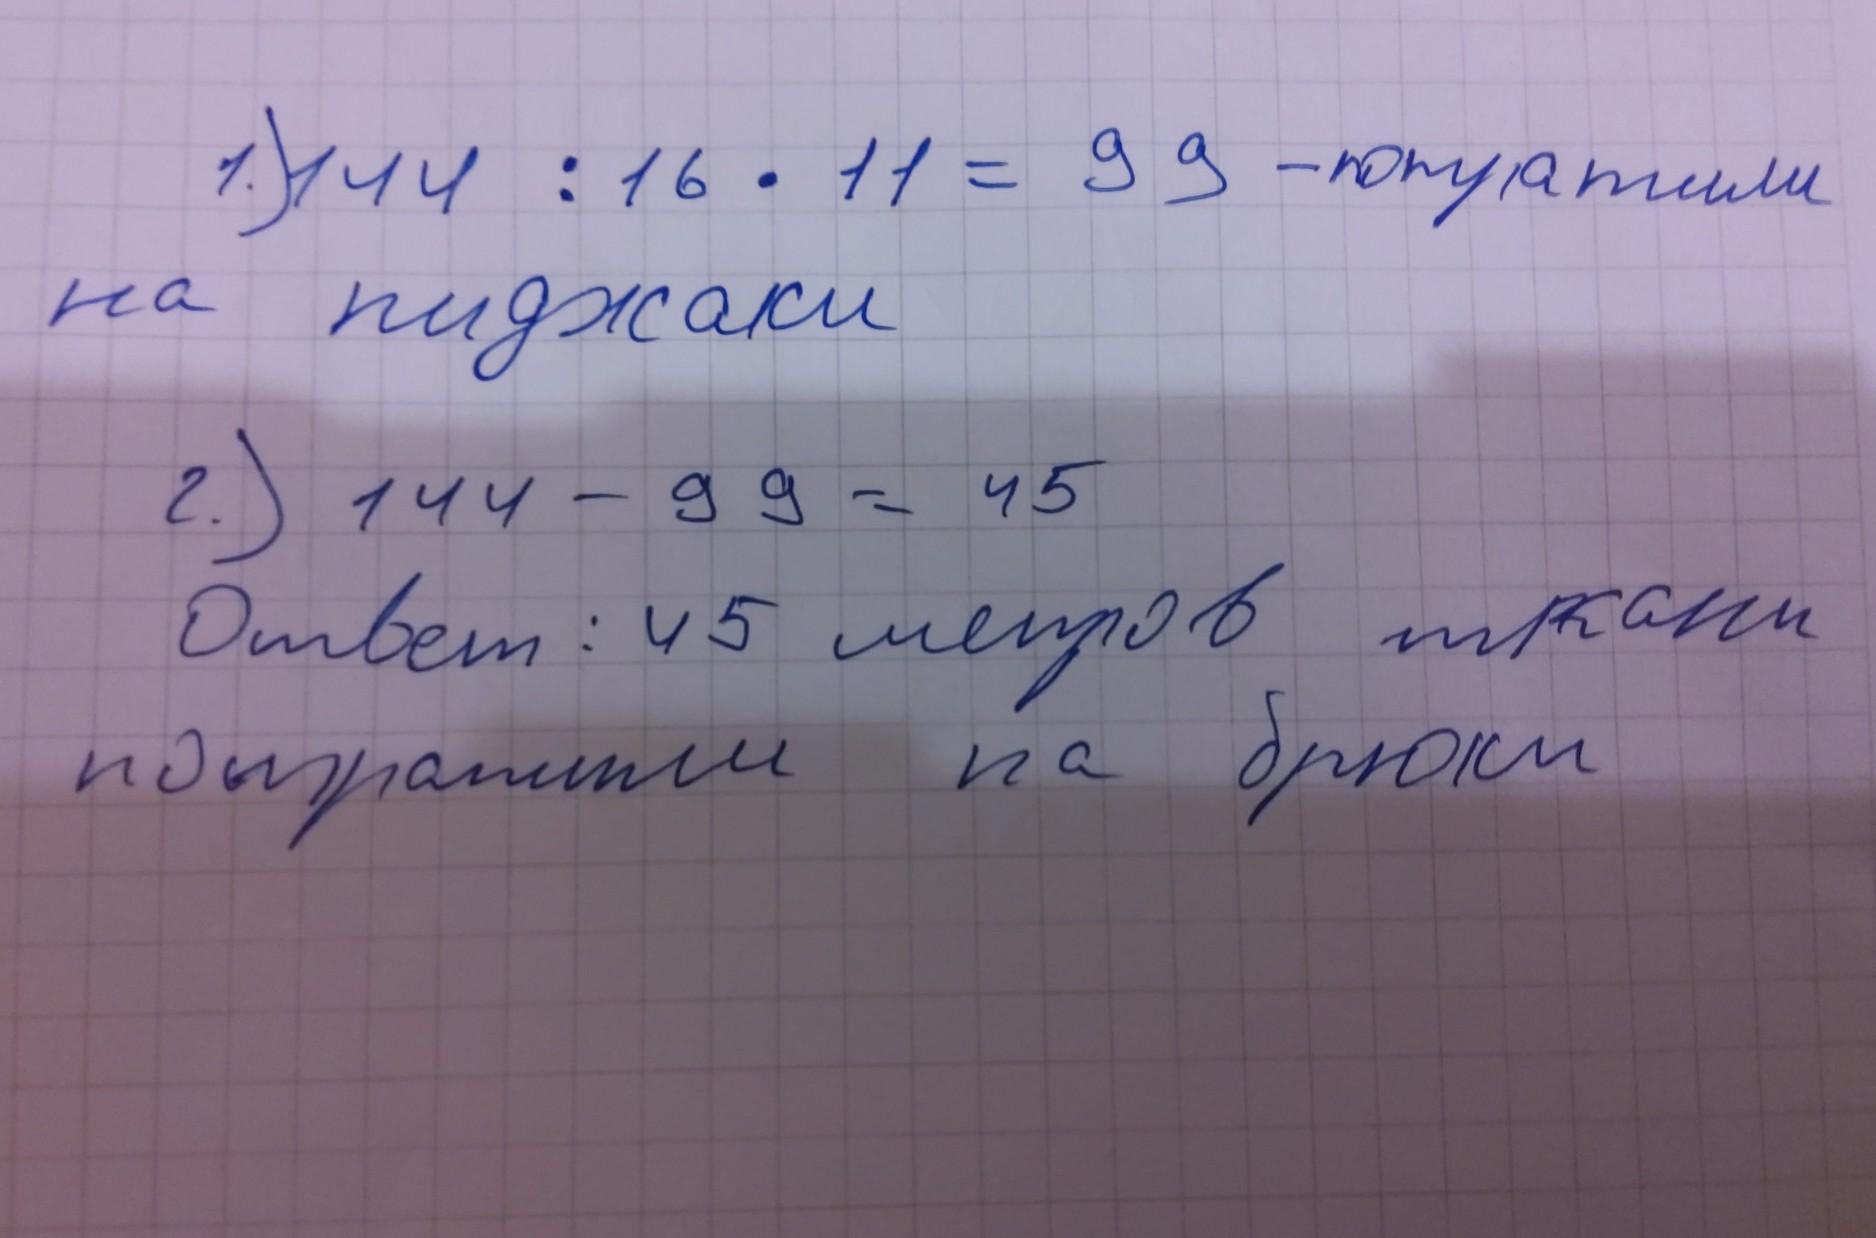 1.) 144 : 16 • 11 = 99 - потратили
на пиджаки
2.) 144 - 99 = 45
Ответ: 45 метров ткани
потратили на брюки